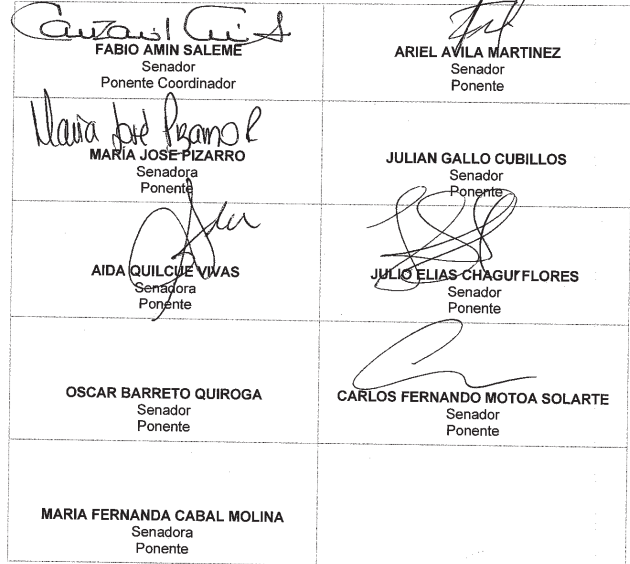 FABIO AMIN SALEME
Senador
Ponente Coordinador
ARIEL AVILA MARTINEZ
Senador
Ponente
María José Pizarro R
MARÍA JOSE PIZARRO
Senadora
Ponente
JULIAN GALLO CUBILLOS
Senador
Ponente
AIDA QUILCUE VIVAS
Senadora
Ponente
JULIO ELIAS CHAGUI FLORES
Senador
Ponente
OSCAR BARRETO QUIROGA
Senador
Ponente
CARLOS FERNANDO MOTOA SOLARTE
Senador
Ponente
MARIA FERNANDA CABAL MOLINA
Senadora
Ponente